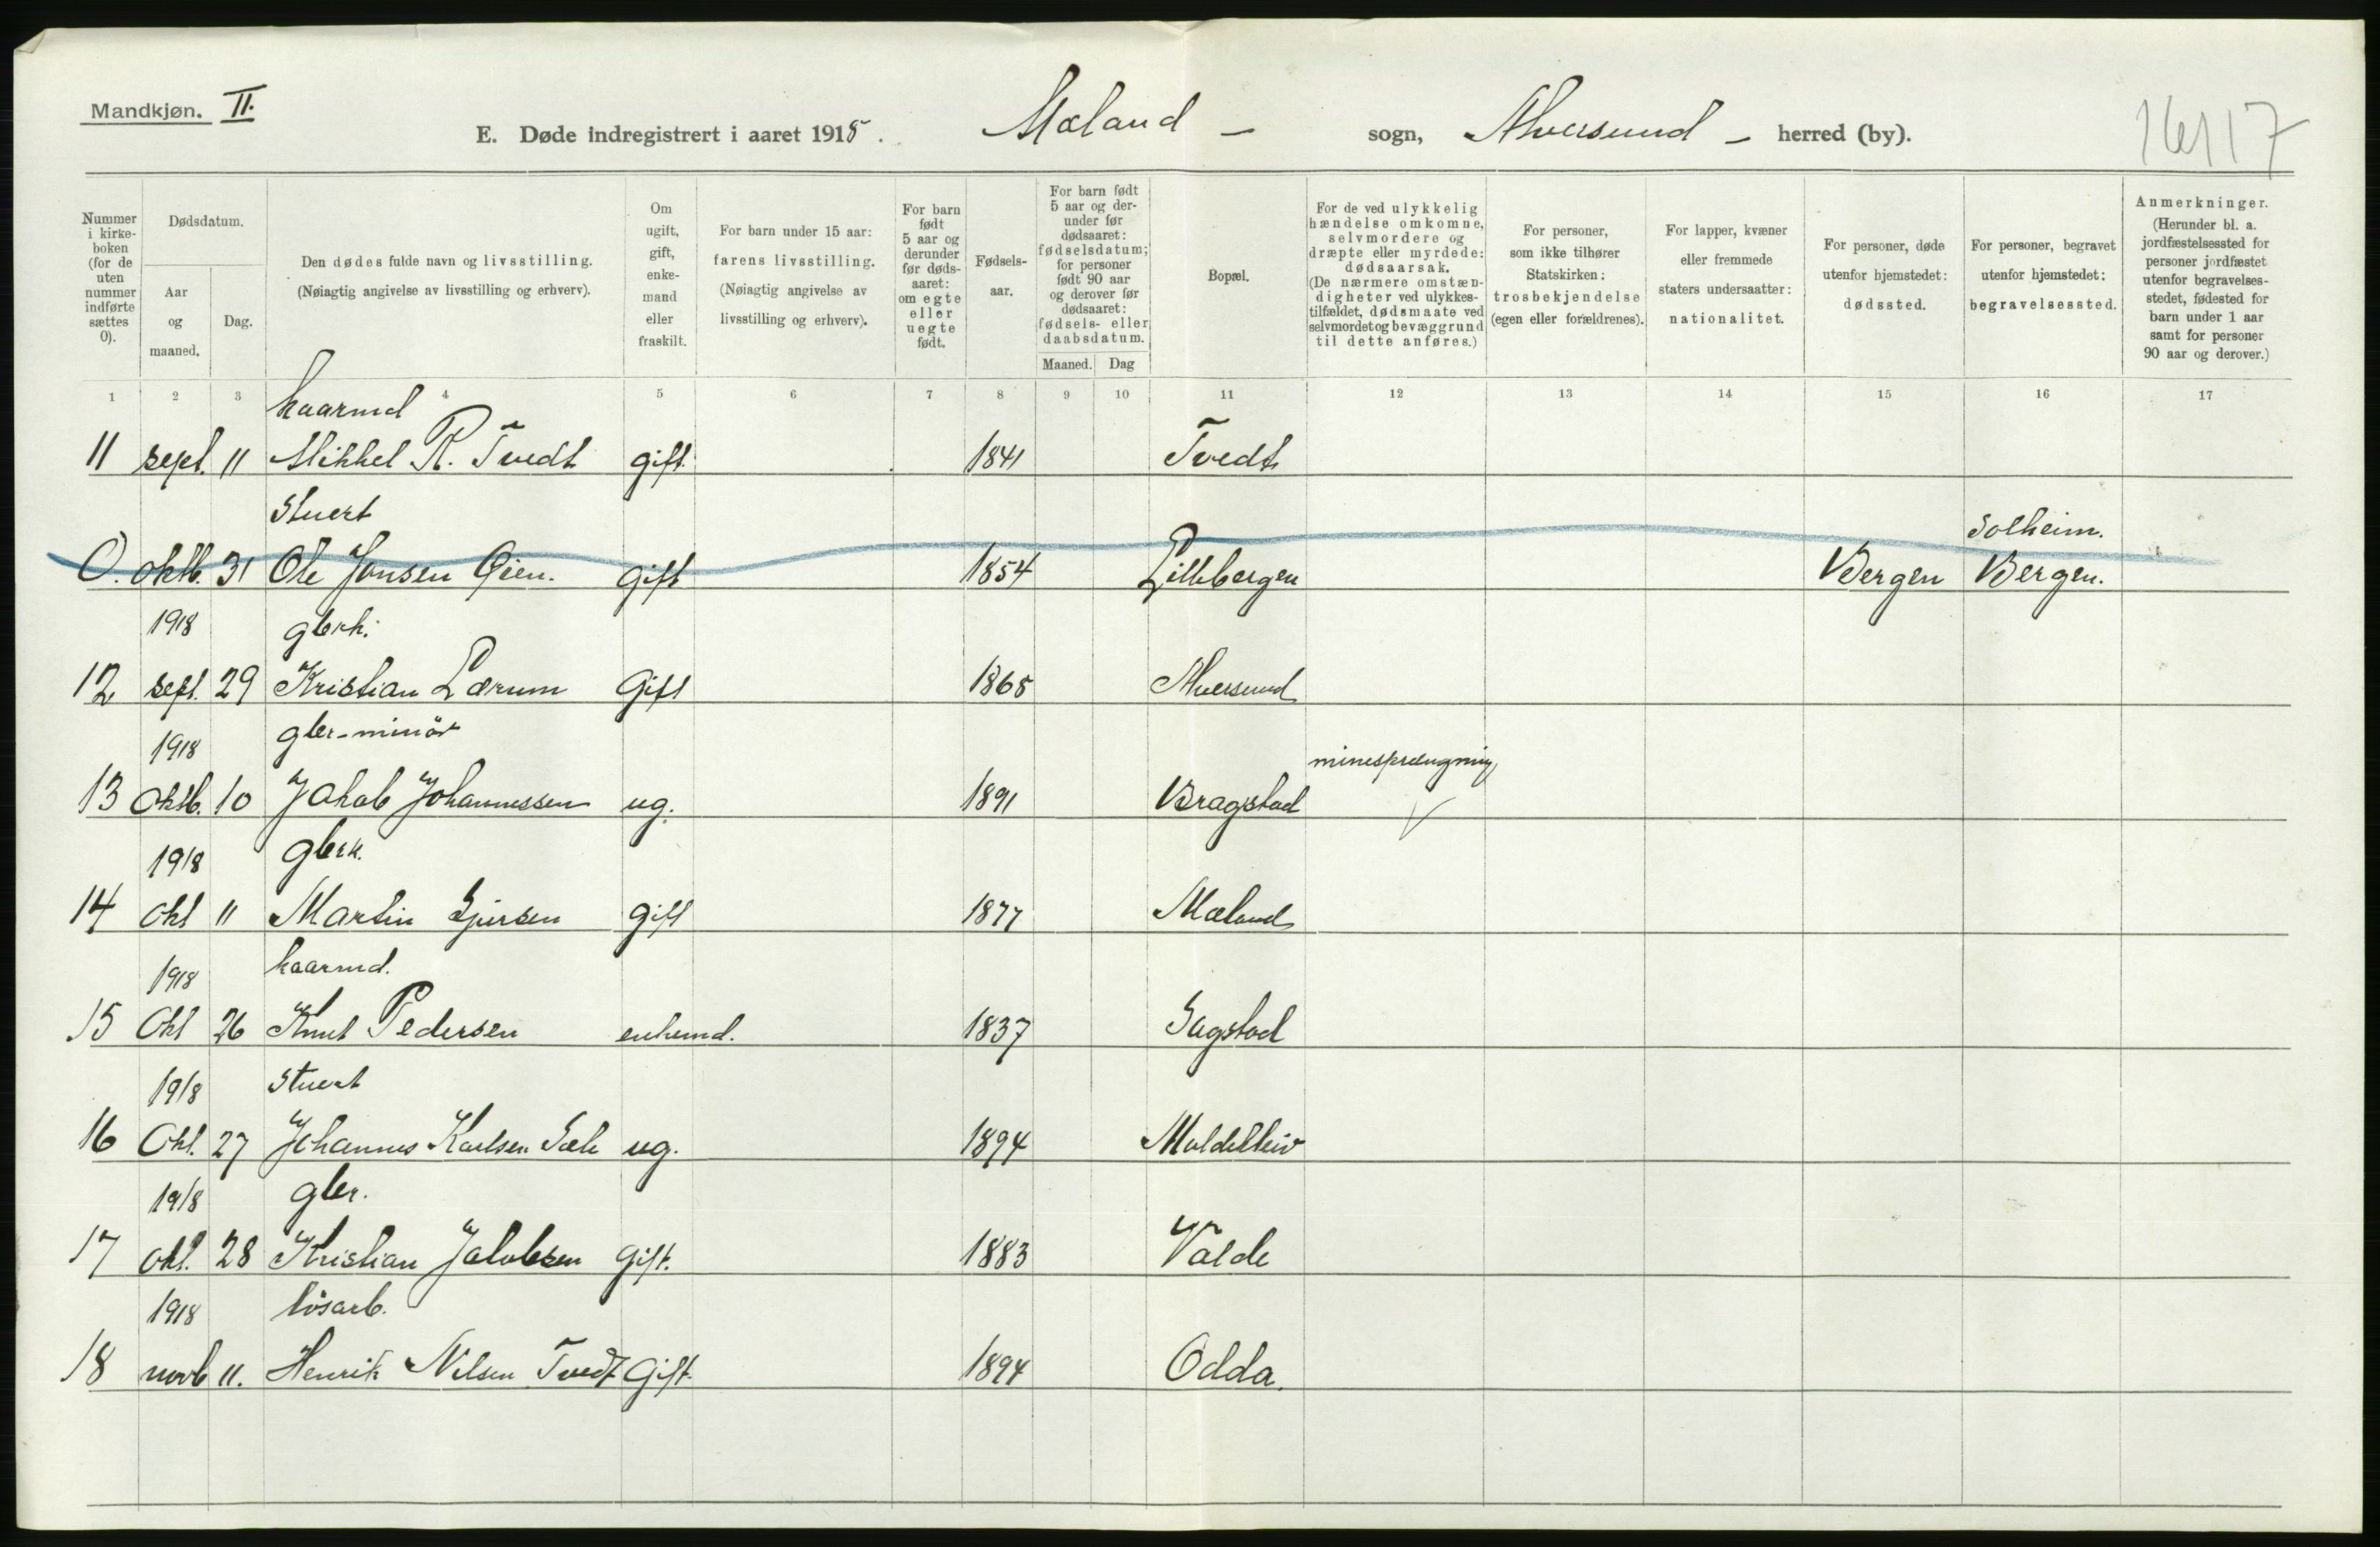 Mandkjøn. II.
E. Døde indregistrert i aaret 1918. Mæland - sogn, Alversund - herred (by).
16117
Nummer i kirke-boken (for de uten nummer indførte sættes 0).
Dødsdatum.
Aar og maaned.
Dag.
Den dødes fulde navn og livsstilling.
(Nøiagtig angivelse av livsstilling og erhverv).
Om ugift, gift, enke-mand eller fraskilt.
For barn under 15 aar: farens livsstilling. (Nøiagtig angivelse av livsstilling og erhverv).
For barn født 5 aar og derunder før døds-aaret: om egte eller uegte født.
Fødsels-aar.
For barn født 5 aar og der-under før dødsaaret: fødselsdatum; for personer født 90 aar og derover før dødsaaret: fødsels- eller daabsdatum.
Maaned. Dag
Bopæl.
For de ved ulykkelig hændelse omkomne, selvmordere og dræpte eller myrdede: dødsaarsak. (De nærmere omstæn-digheter ved ulykkes-tilfældet, dødsmaate ved selvmordet og bevæggrund til dette anføres.)
For personer, som ikke tilhører Statskirken: trosbekjendelse (egen eller forældrenes).
For lapper, kvæner eller fremmede staters undersaatter: nationalitet.
For personer, døde utenfor hjemstedet: dødssted.
For personer, begravet utenfor hjemstedet: begravelsessted.
Anmerkninger. (Herunder bl. a. jordfæstelsessted for personer jordfæstet utenfor begravelses-stedet, fødested for barn under 1 aar samt for personer 90 aar og derover.)
1 2 3 4 5 6 7 8 9 10 11 12 13 14 15 16 17
kaarmd
11 sept. 11 Mikkel R. Tvedt gift. 1841 Tvedt
Stuert
Solheim.
0. oktb. 31 Ole Jonsen Øien. gift 1854 Lillebergen Bergen Bergen.
1918 gbrk.
12 sept. 29 Kristian Lærum Gift 1865 Alversund
1918 gbr-minör
minesprængning
13 Oktb. 10 Jakob Johannessen ug. 1891 Bragstad
1918 gbrk.
14 Okt 11 Martin Sjursen gift 1877 Mæland
1918 kaarmd.
15 Okt 26 Knut Pedersen enkemd. 1837 Sagstad
1918 Stuert
16 Okt. 27 Johannes Karlsen Sæle ug. 1894
1918 gbr.
17 okt. 28 Kristian Jakobsen Gift. 1883 Valde
1918 lösarb.
18 novb 11. Henrik Nilsen Tvedt Gift. 1894 Odda.